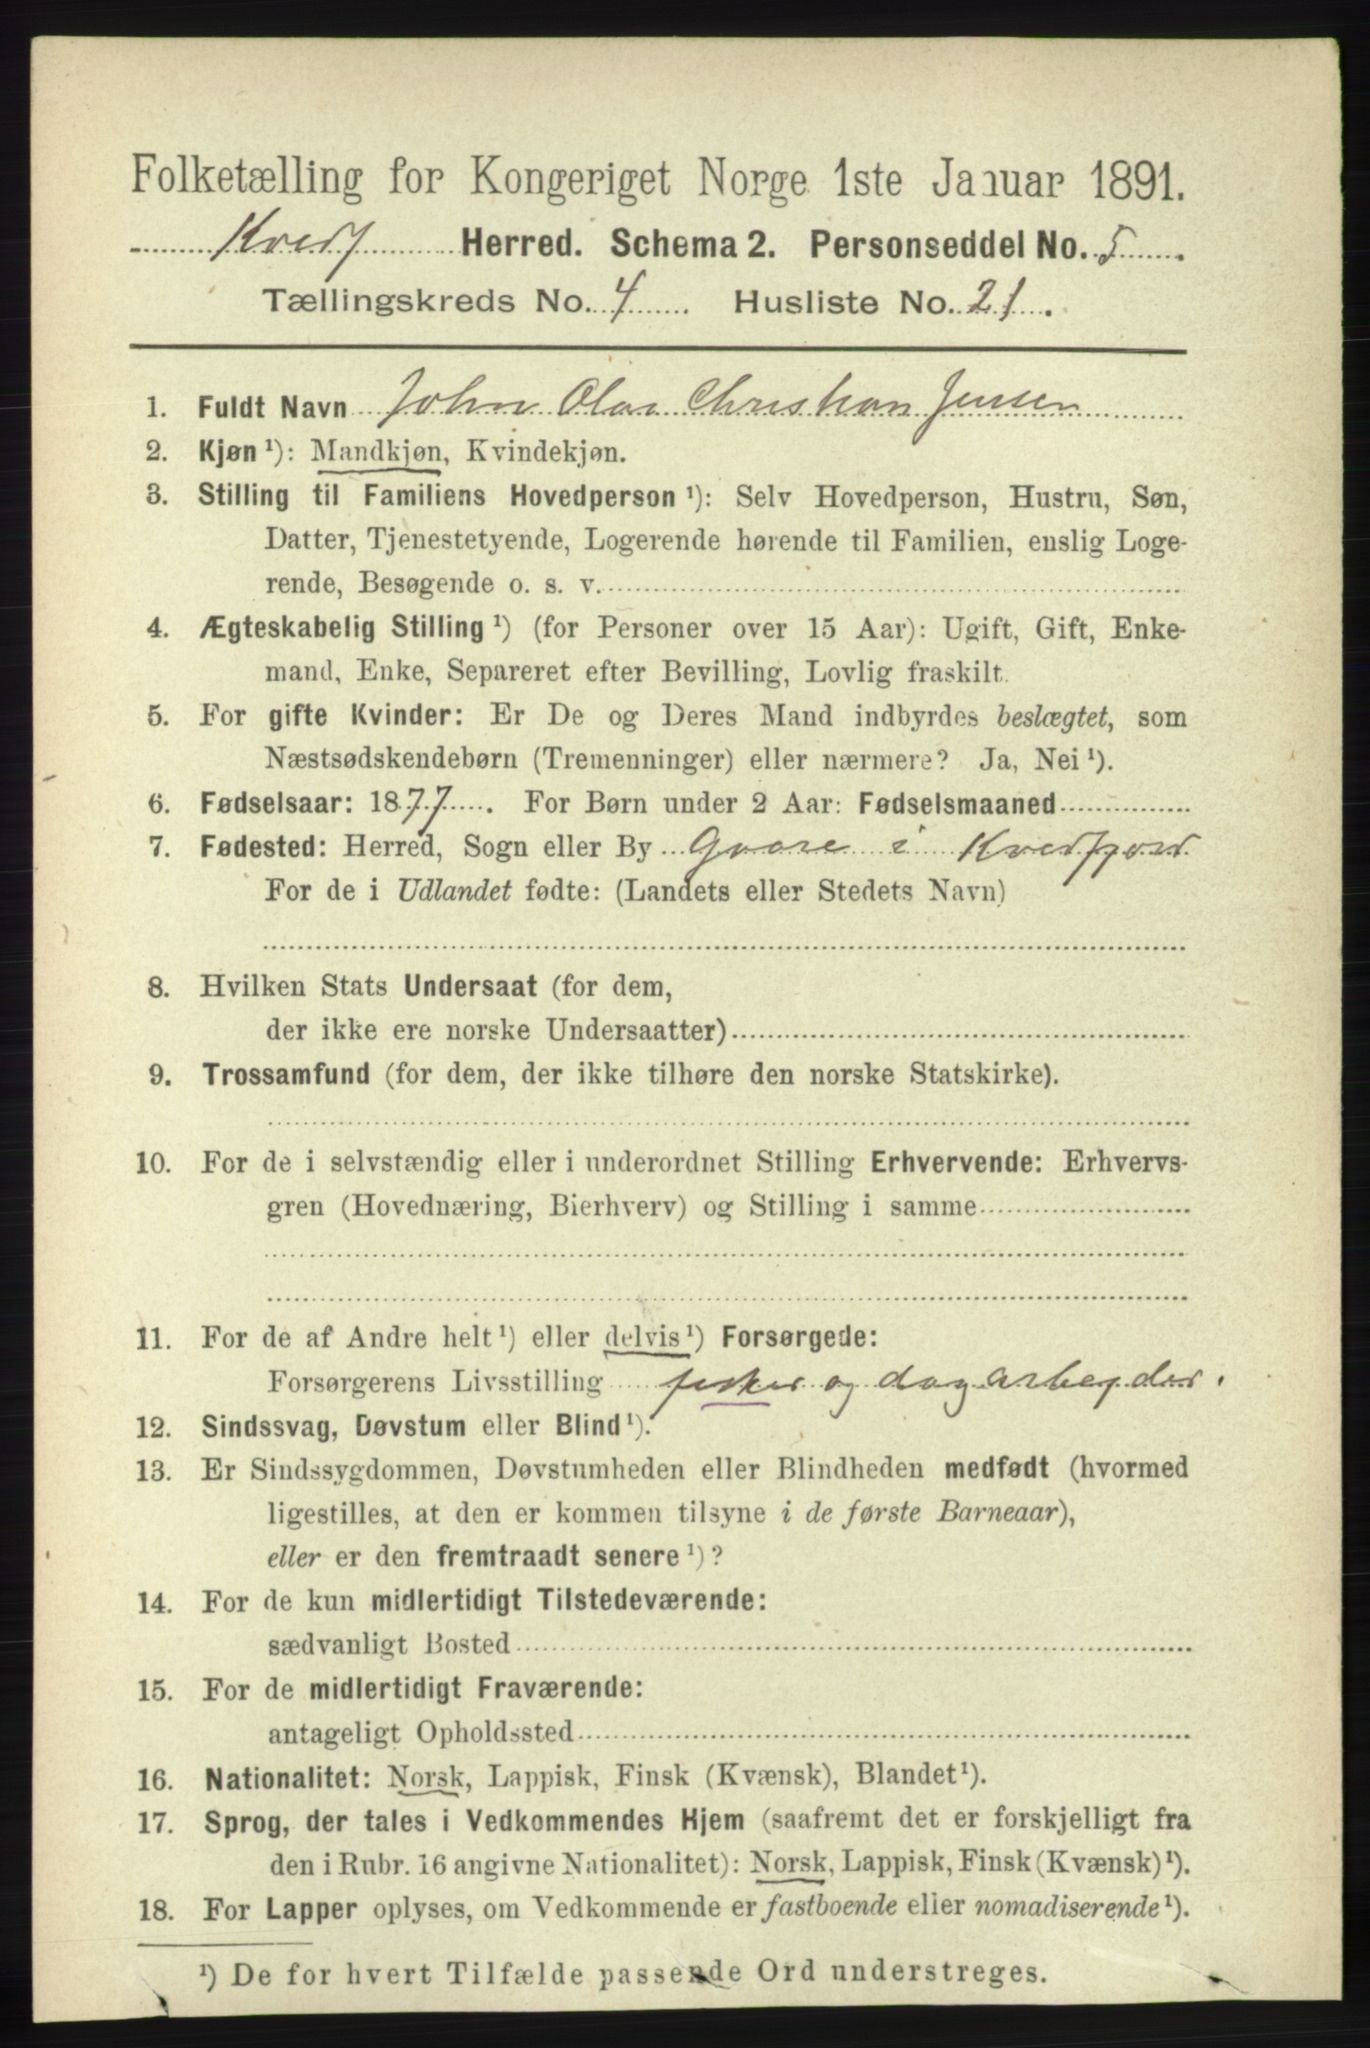 Folketælling for Kongeriget Norge 1ste Januar 1891.
Kvedf Herred. Schema 2. Personseddel No. 5.
Tællingskreds No. 4 Husliste No. 21.
1. Fuldt Navn John Olai Christian Jensen
2. Kjøn ¹): Mandkjøn, Kvindekjøn.
3. Stilling til Familiens Hovedperson ¹): Selv Hovedperson, Hustru, Søn,
Datter, Tjenestetyende, Logerende hørende til Familien, enslig Loge-
rende, Besøgende o. s. v.
4. Ægteskabelig Stilling ¹) (for Personer over 15 Aar): Ugift, Gift, Enke-
mand, Enke, Separeret efter Bevilling, Lovlig fraskilt.
5. For gifte Kvinder: Er De og Deres Mand indbyrdes beslægtet, som
Næstsødskendebørn (Tremenninger) eller nærmere? Ja, Nei ¹).
6. Fødselsaar: 1877. For Børn under 2 Aar: Fødselsmaaned
7. Fødested: Herred, Sogn eller By i Kvedfjord
For de i Udlandet fødte: (Landets eller Stedets Navn)
8. Hvilken Stats Undersaat (for dem,
der ikke ere norske Undersaatter)
9. Trossamfund (for dem, der ikke tilhøre den norske Statskirke).
10. For de i selvstændig eller i underordnet Stilling Erhvervende: Erhvervs-
gren (Hovednæring, Bierhverv) og Stilling i samme
11. For de af Andre helt ¹) eller delvis ¹) Forsørgede:
Forsørgerens Livsstilling fisker og dagarbeyder.
12. Sindssvag, Døvstum eller Blind ¹).
13. Er Sindssygdommen, Døvstumheden eller Blindheden medfødt (hvormed
ligestilles, at den er kommen tilsyne i de første Barneaar),
eller er den fremtraadt senere ¹)?
14. For de kun midlertidigt Tilstedeværende:
sædvanligt Bosted
15. For de midlertidigt Fraværende:
antageligt Opholdssted
16. Nationalitet: Norsk, Lappisk, Finsk (Kvænsk), Blandet ¹).
17. Sprog, der tales i Vedkommendes Hjem (saafremt det er forskjelligt fra
den i Rubr. 16 angivne Nationalitet): Norsk, Lappisk, Finsk (Kvænsk) ¹).
18. For Lapper oplyses, om Vedkommende er fastboende eller nomadiserende ¹).
¹) De for hvert Tilfælde passende Ord understreges.